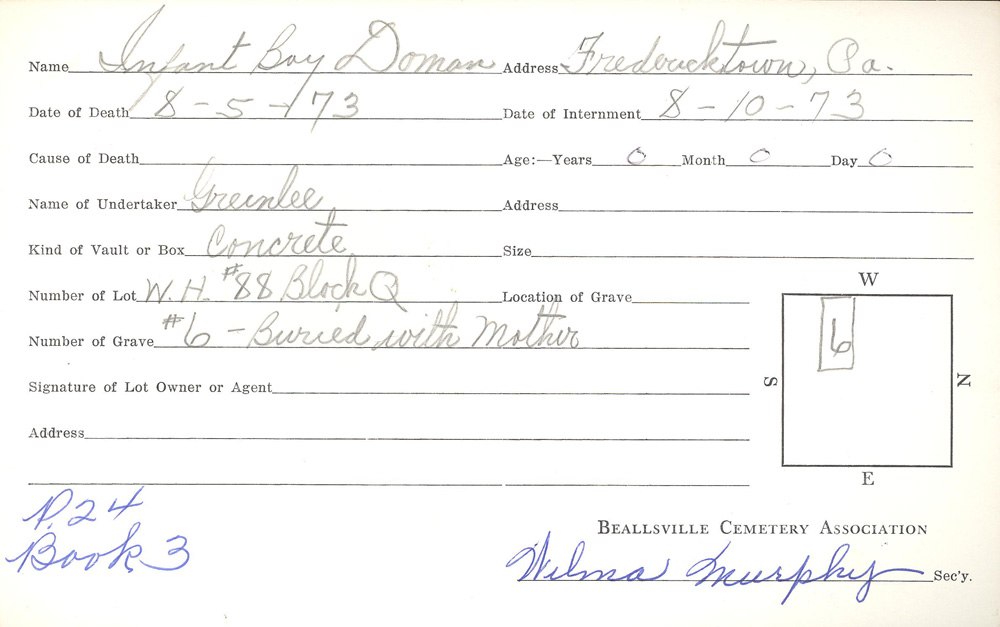 Name Infant Boy Doman Address Fredericktown, Pa.
Date of Death 8-5-73 Date of Internment 8-10-73
Cause of Death Age:—Years 0 Month 0 Day 0
Name of Undertaker Greenlee Address
Kind of Vault or Box Concrete Size
Number of Lot W. H. #88 Block Q Location of Grave
Number of Grave #6 - Buried with Mother
Signature of Lot Owner or Agent
Address
W
6
S
N
E
P. 24
Book 3
Beallsville Cemetery Association
Wilma Murphy Sec'y.